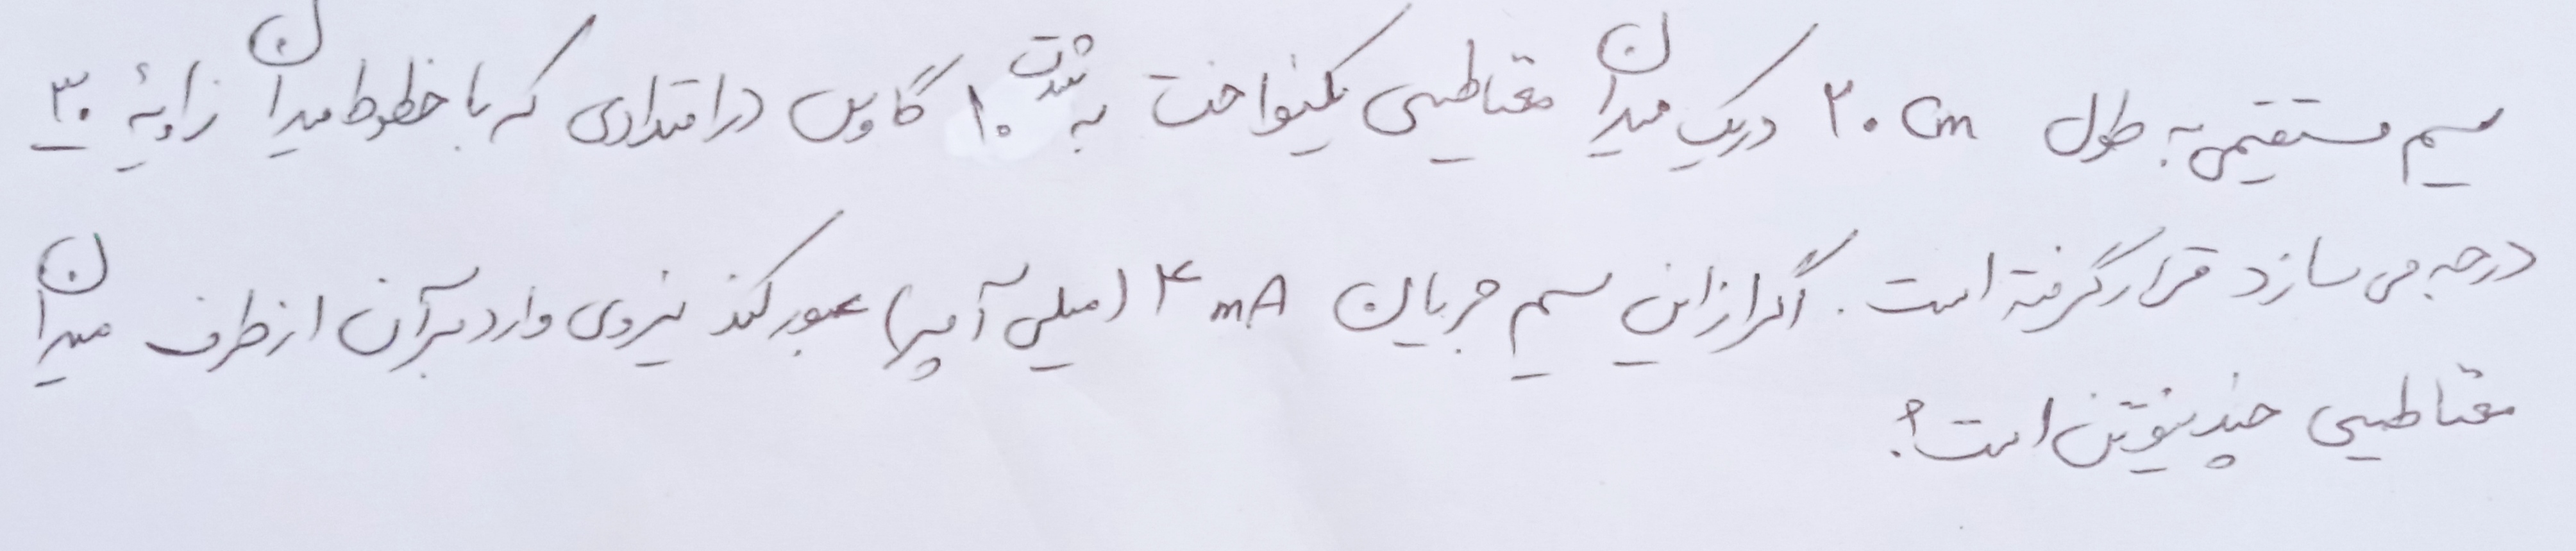 سیم مستقیمی به طول ۲۰ cm در یک میدان مغناطیسی یکنواخت به شدت ۱۰ گاوس در امتدادی که با خطوط میدان زاویهٔ ۳۰
درجه می سازد قرار گرفته است. اگر از این سیم جریان ۴ mA (میلی آمپر) عبور کند نیروی وارد بر آن از طرف میدان
مغناطیسی چند نیوتن است؟